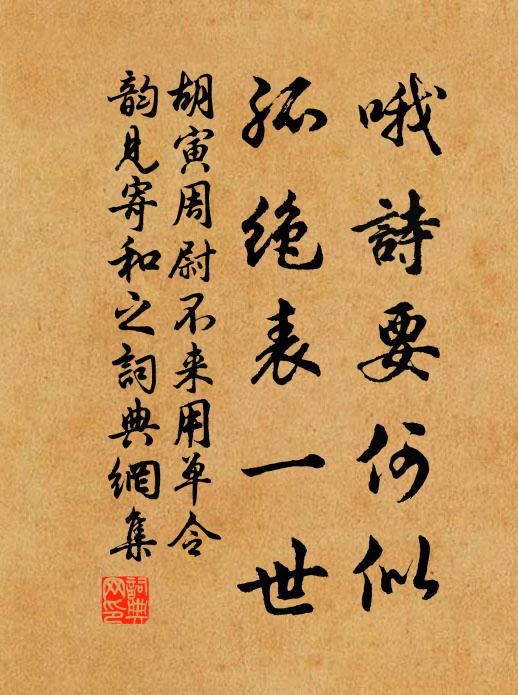 哦詩要何似
孤絶表一世
胡寅周尉不来用单令
韵見寄和之詞典網集
詞典
网印